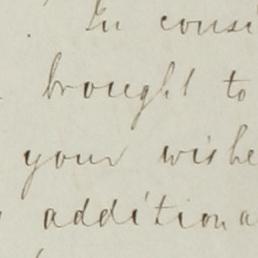 In consi
brought to
your wishe
additiona